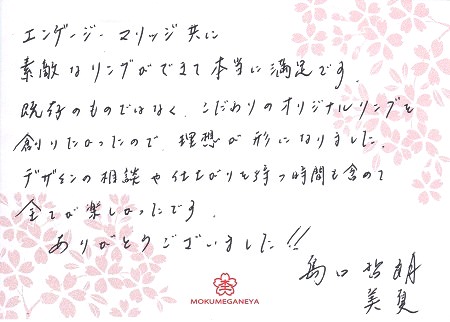 エンゲージ・マリッジ共に
素敵なリングができて本当に満足です。
既存のものではなく、こだわりのオリジナルリングを
創りたかったので、理想が形になりました。
デザインの相談や仕上がりを待つ時間も含めて
全てが楽しかったです。
ありがとうございました!!
島口 哲朗
美夏
MOKUMEGANEYA